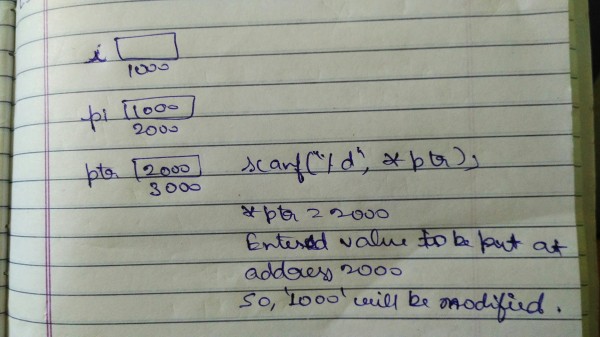 i
1000
pi 1000
2000
ptr 2000 scanf("%d", *ptr);
3000
*ptr = 2000
Entered value to be put at
address 2000
So, '1000' will be modified.